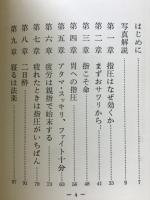 はじめに
写真解説
第一章 指圧はなぜ効くか
第二章 まずおサワリから…
第三章 指こそ命
第四章 胃への指圧
第五章 アタマ・スッキリ、ファイト十分
第六章 疲労は親指で始末する
第七章 疲れたときは指圧がいちばん
第八章 二日酔
第九章 寝るは法楽
— 4 —